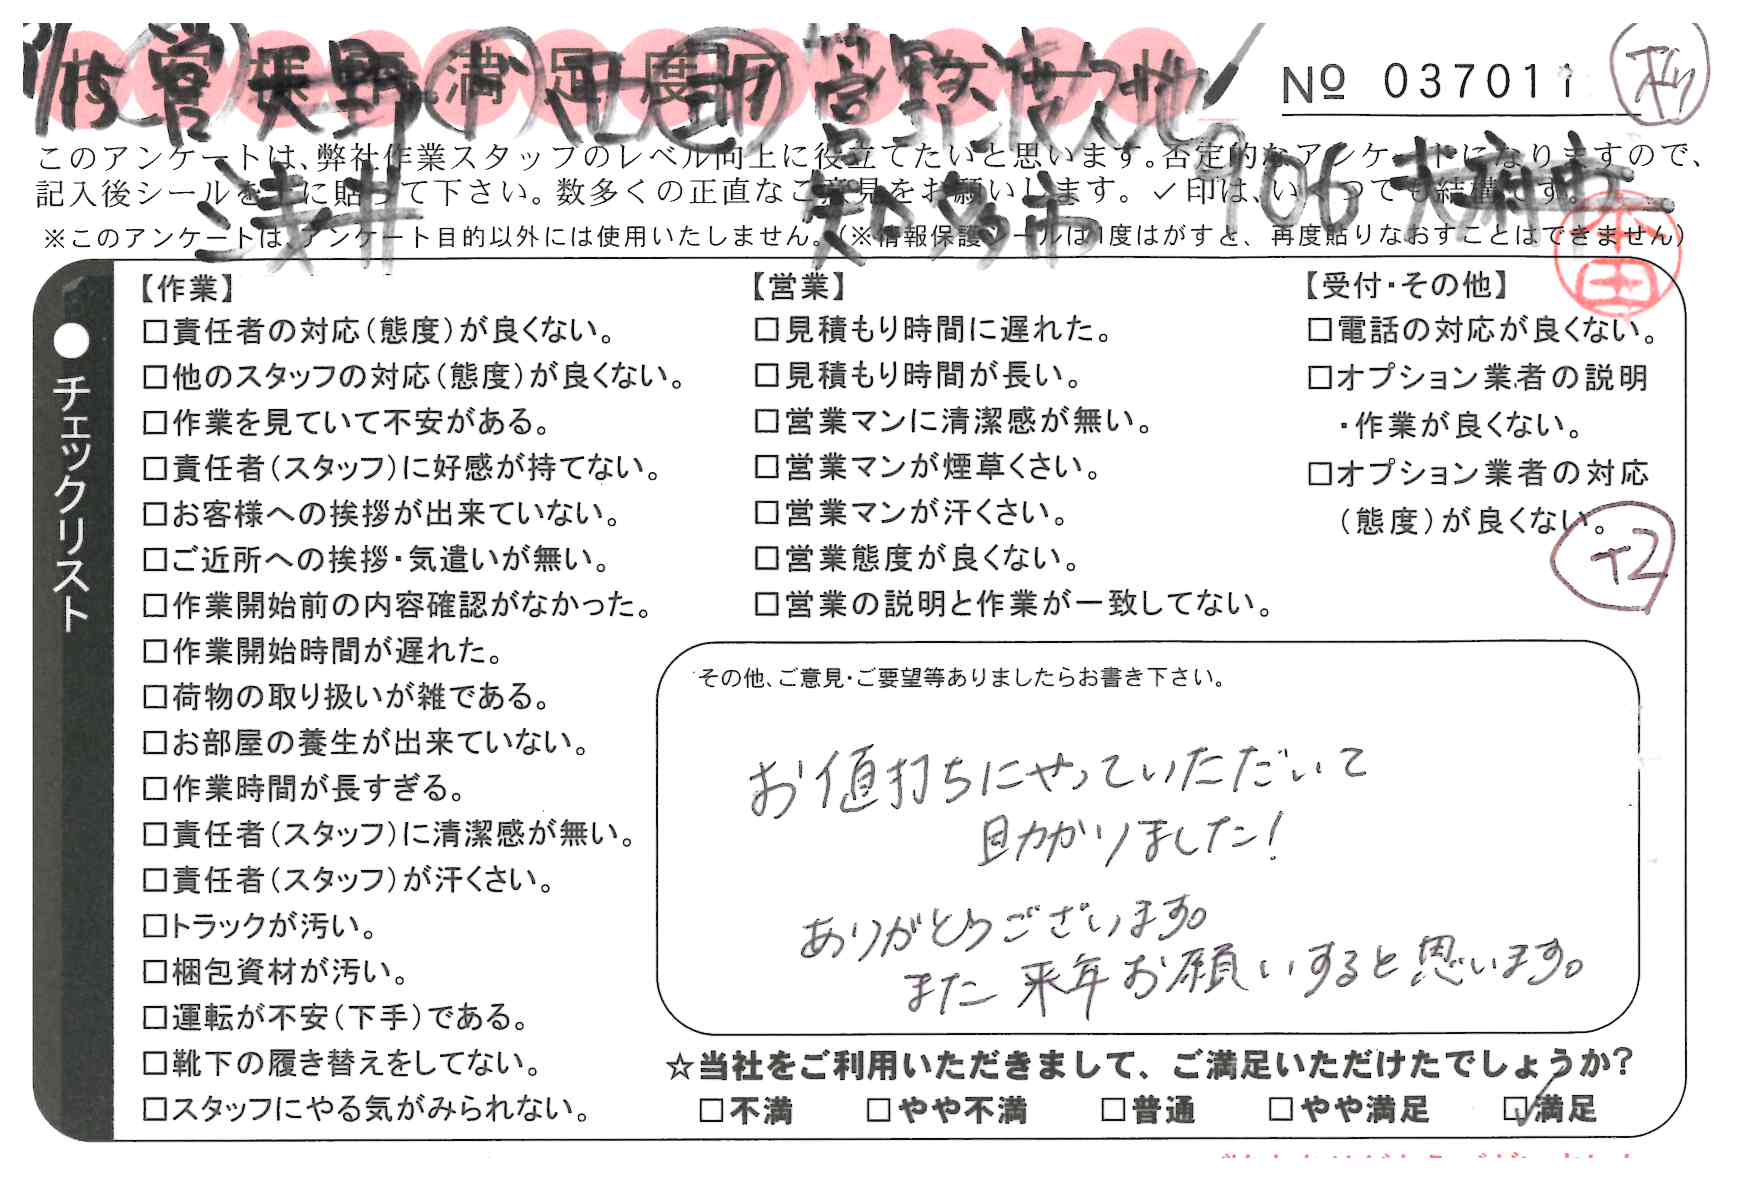 満足度
№ 037011
このアンケートは、弊社作業スタッフのレベル向上に役立てたいと思います。否定的なアンケートになりますので、
記入後シールを上に貼って下さい。数多くの正直なご意見をお願いします。✓印は、いくつでも結構です。
※このアンケートは、アンケート目的以外には使用いたしません。（※情報保護シールは1度はがすと、再度貼りなおすことはできません）
浅井
知多市
906
本田
●チェックリスト
【作業】
□責任者の対応（態度）が良くない。
□他のスタッフの対応（態度）が良くない。
□作業を見ていて不安がある。
□責任者（スタッフ）に好感が持てない。
□お客様への挨拶が出来ていない。
□ご近所への挨拶・気遣いが無い。
□作業開始前の内容確認がなかった。
□作業開始時間が遅れた。
□荷物の取り扱いが雑である。
□お部屋の養生が出来ていない。
□作業時間が長すぎる。
□責任者（スタッフ）に清潔感が無い。
□責任者（スタッフ）が汗くさい。
□トラックが汚い。
□梱包資材が汚い。
□運転が不安（下手）である。
□靴下の履き替えをしてない。
□スタッフにやる気がみられない。
【営業】
□見積もり時間に遅れた。
□見積もり時間が長い。
□営業マンに清潔感が無い。
□営業マンが煙草くさい。
□営業マンが汗くさい。
□営業態度が良くない。
□営業の説明と作業が一致してない。
【受付・その他】
□電話の対応が良くない。
□オプション業者の説明
・作業が良くない。
□オプション業者の対応
（態度）が良くない。
T2
その他、ご意見・ご要望等ありましたらお書き下さい。
お値打ちにやっていただいて
助かりました！
ありがとうございます。
また来年お願いすると思います。
☆当社をご利用いただきまして、ご満足いただけたでしょうか？
□不満 □やや不満 □普通 □やや満足 ☑満足